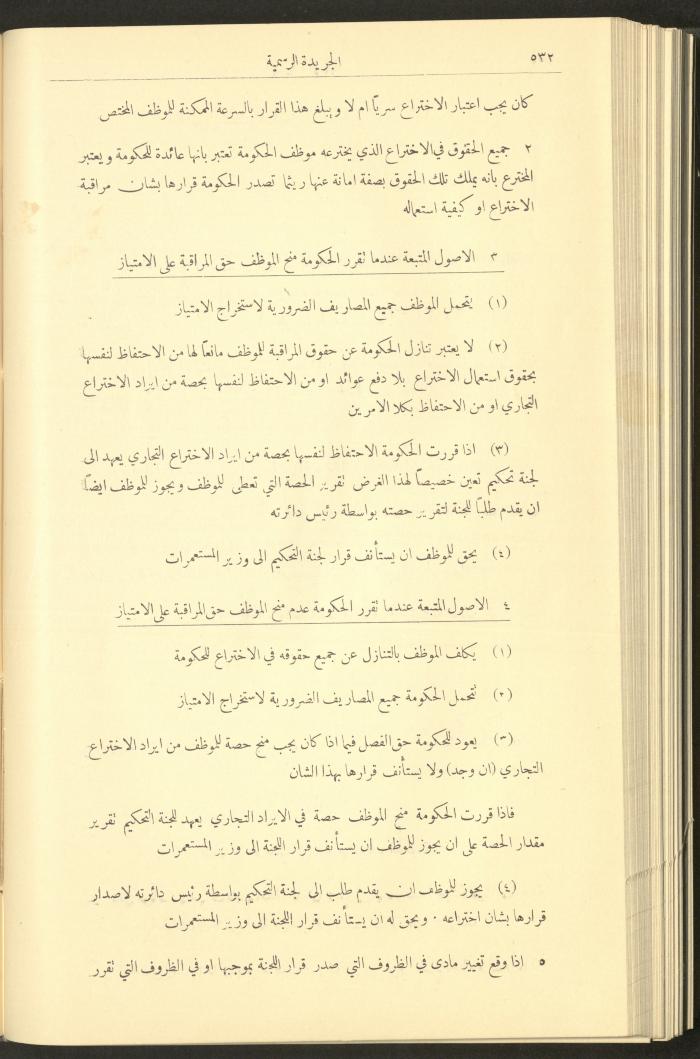 ٥٣٢
الجريدة الرسمية
كان يجب اعتبار الاختراع سريّا ام لا ويبلغ هذا القرار بالسرعة الممكنة للموظف المختص
٢ جميع الحقوق في الاختراع الذي يخترعه موظف الحكومة تعتبر بانها عائدة للحكومة ويعتبر
المخترع بانه يملك تلك الحقوق بصفة امانة عنها ريثما تصدر الحكومة قرارها بشان مراقبة
الاختراع او كيفية استعماله
٣ الاصول المتبعة عندما تقرر الحكومة منح الموظف حق المراقبة على الامتياز
(١) يتحمل الموظف جميع المصاريف الضرورية لاستخراج الامتياز
(٢) لا يعتبر تنازل الحكومة عن حقوق المراقبة للموظف مانعاً لها من الاحتفاظ لنفسها
بحقوق استعمال الاختراع بلا دفع عوائد او من الاحتفاظ لنفسها بحصة من ايراد الاختراع
التجاري او من الاحتفاظ بكلا الامرين
(٣) اذا قررت الحكومة الاحتفاظ لنفسها بحصة من ايراد الاختراع التجاري يعهد الى
لجنة تحكيم تعين خصيصاً لهذا الغرض تقرير الحصة التي تعطى للموظف ويجوز للموظف ايضاً
ان يقدم طلباً للجنة لتقرير حصته بواسطة رئيس دائرته
(٤) يحق للموظف ان يستأنف قرار لجنة التحكيم الى وزير المستعمرات
٤ الاصول المتبعة عندما تقرر الحكومة عدم منح الموظف حق المراقبة على الامتياز
(١) يكلف الموظف بالتنازل عن جميع حقوقه في الاختراع للحكومة
(٢) تتحمل الحكومة جميع المصاريف الضرورية لاستخراج الامتياز
(٣) يعود للحكومة حق الفصل فيما اذا كان يجب منح حصة للموظف من ايراد الاختراع
التجاري (ان وجد) ولا يستأنف قرارها بهذا الشان
فاذا قررت الحكومة منح الموظف حصة في الايراد التجاري يعهد للجنة التحكيم تقرير
مقدار الحصة على ان يجوز للموظف ان يستأنف قرار اللجنة الى وزير المستعمرات
(٤) يجوز للموظف ان يقدم طلب الى لجنة التحكيم بواسطة رئيس دائرته لاصدار
قرارها بشان اختراعه . ويحق له ان يستأنف قرار اللجنة الى وزير المستعمرات
٥ اذا وقع تغيير مادى في الظروف التي صدر قرار اللجنة بموجبها او في الظروف التي تقرر